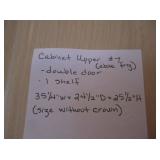 Cabinet Upper #7
(above frig)
- double door
- 1 shelf
35 1/4" W x 24 1/2" D x 25 1/2" H
(size without crown)